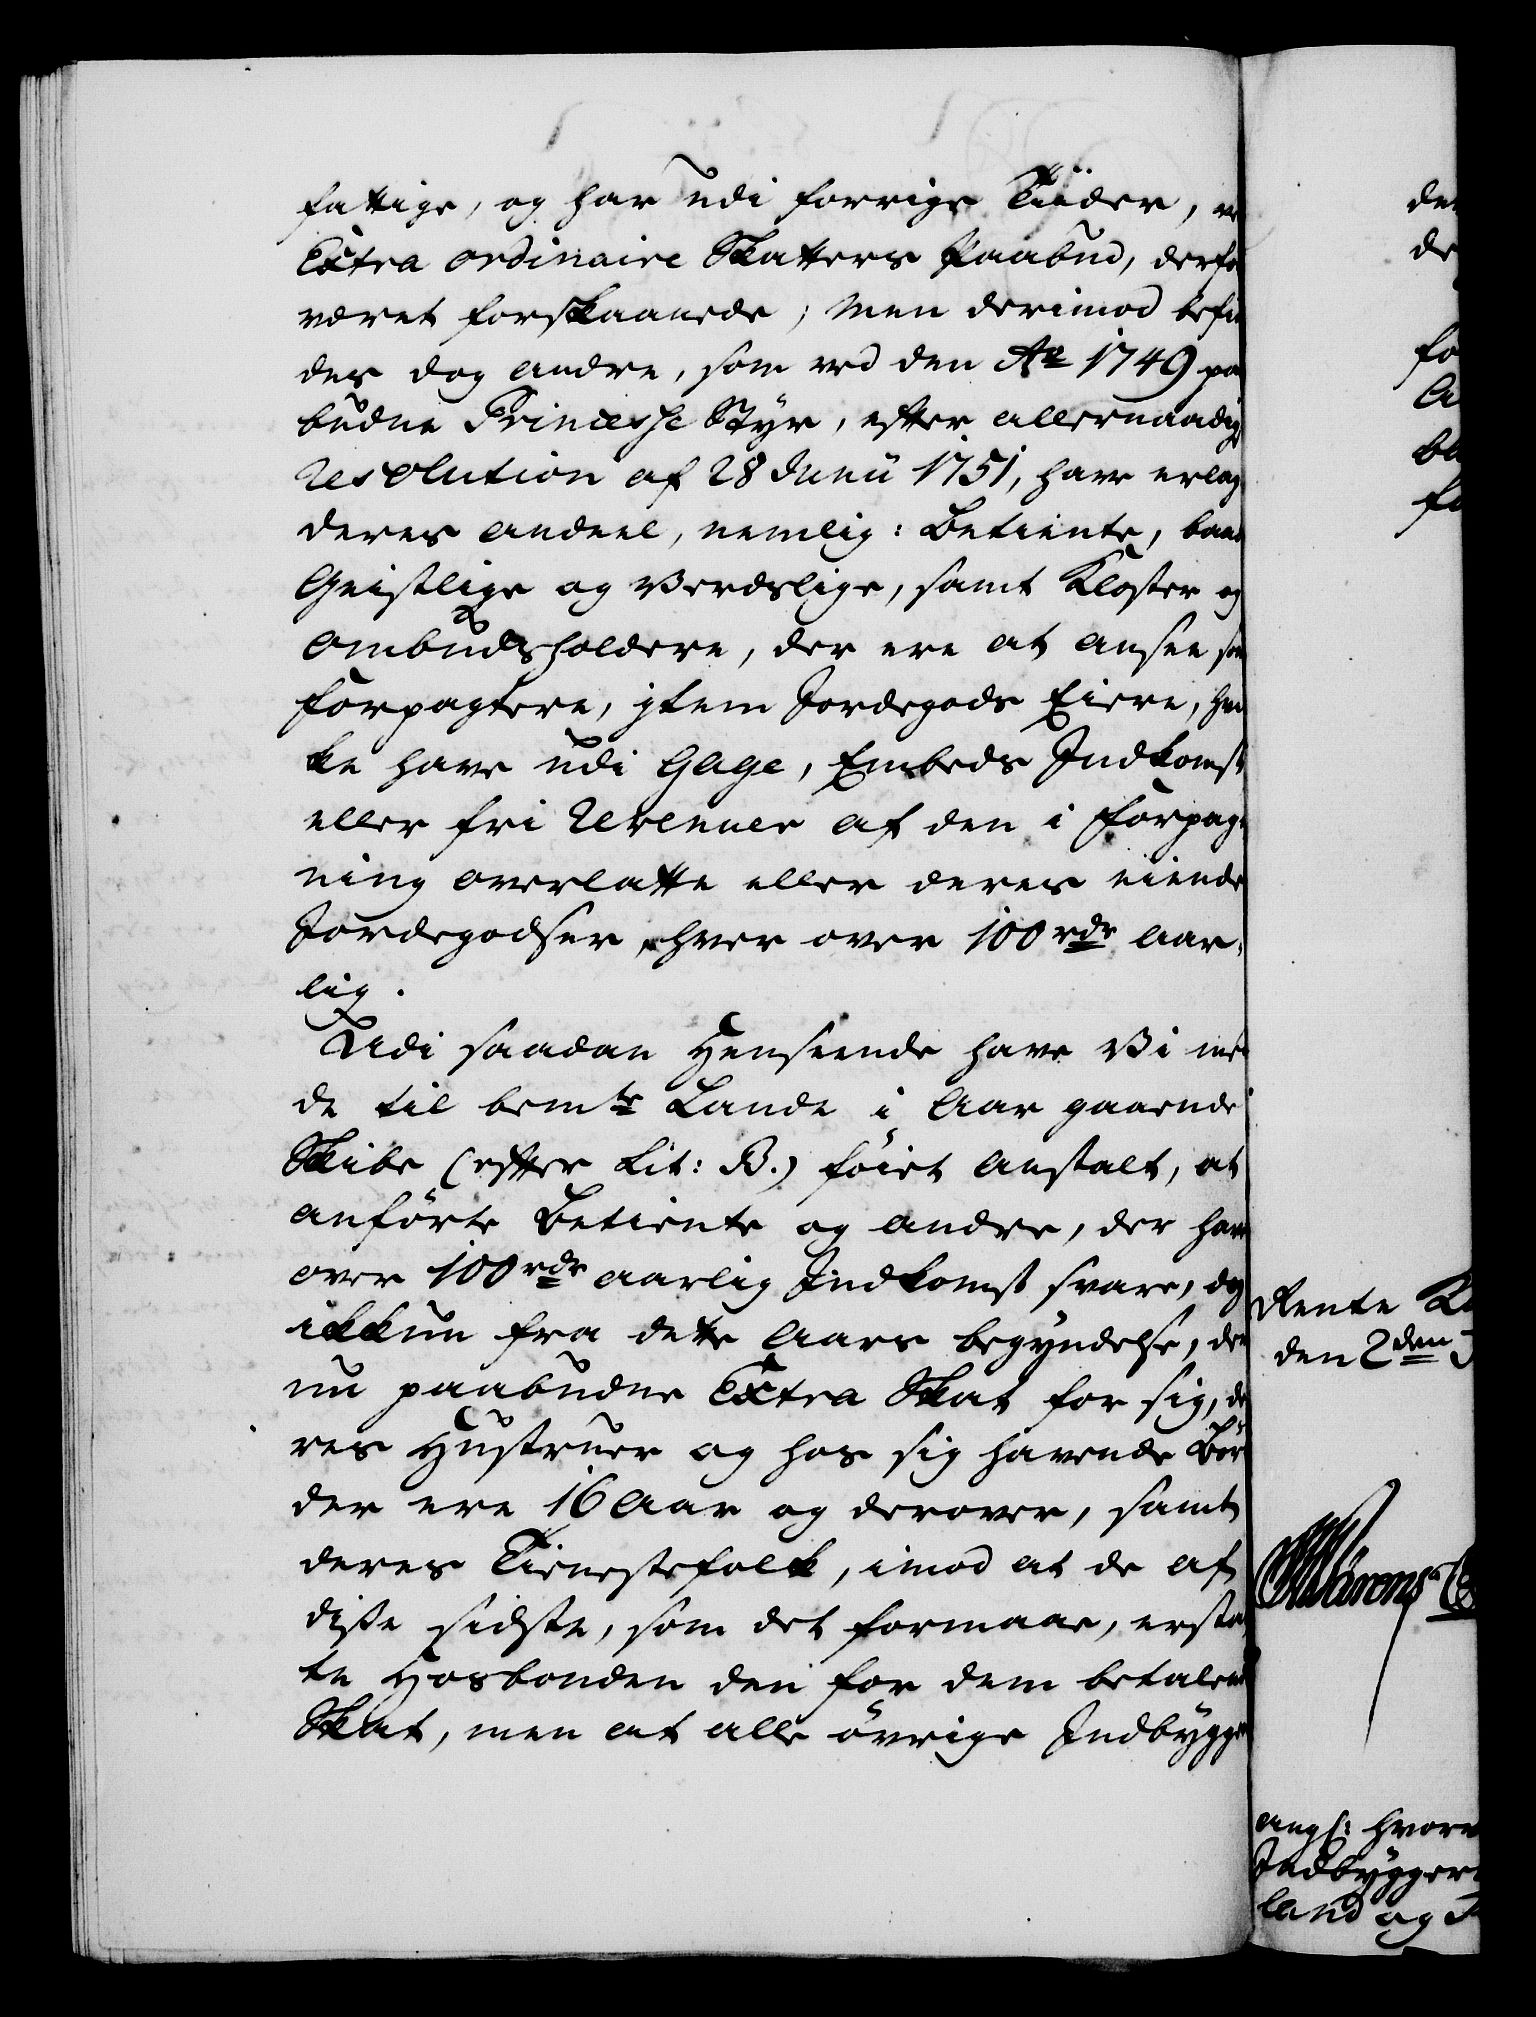 fattige, og har udi forrige Tiider, ve
Extra ordinaire Skatters Paabud, derfo
været forskaanede; Men derimod befin
des dog andre, som ved den Ao 1749 paa
budne Princesse Styr, efter allernaadig
Resolution af 28 Junii 1751, have erlagt
deres andeel, nemlig: Betiente, baade
Geistlige og Verdslige, samt Kloster og
Ombudsholdere, der ere at ansee som
Forpagtere, item Jordegods Eiere, hvil
ke have udi Gage, Embeds Indkomst
eller fri Revenuer af den i Forpagt
ning overlatte eller deres eiende
Jordegodser, hver over 100 rdr Aar,
lig.
Udi saadan Henseende have Vi med
de til bemte Lande i Aar gaaende
Skibe (efter Lit: B.) föiet Anstalt, at
anförte Betiente og andre, der have
over 100 rdr aarlig Indkomst svare, dog
ikkun fra dette Aars begyndelse, den
nu paabudne Extra Skat for sig, de
res Hustruer og hos sig havende Börn
der ere 16 Aar og derover, samt
deres Tienestefolk, imod at de af
disse sidste, som det formaae, ersta
te Hosbonden den for dem betalende
Skat, men at alle övrige Indbygge
den
de
fo
Rente K
den 2den J
angf: hvor
Indbygger
land og F